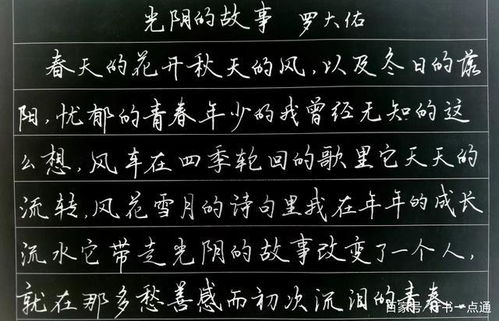 光阴的故事 罗大佑
春天的花开秋天的风,以及冬日的落
阳,忧郁的青春年少的我曾经无知的这
么想,风车在四季轮回的歌里它天天的
流转,风花雪月的诗句里我在年年的成长
流水它带走光阴的故事改变了一个人,
就在那多愁善感而初次流泪的青春
百家号/书书一点通